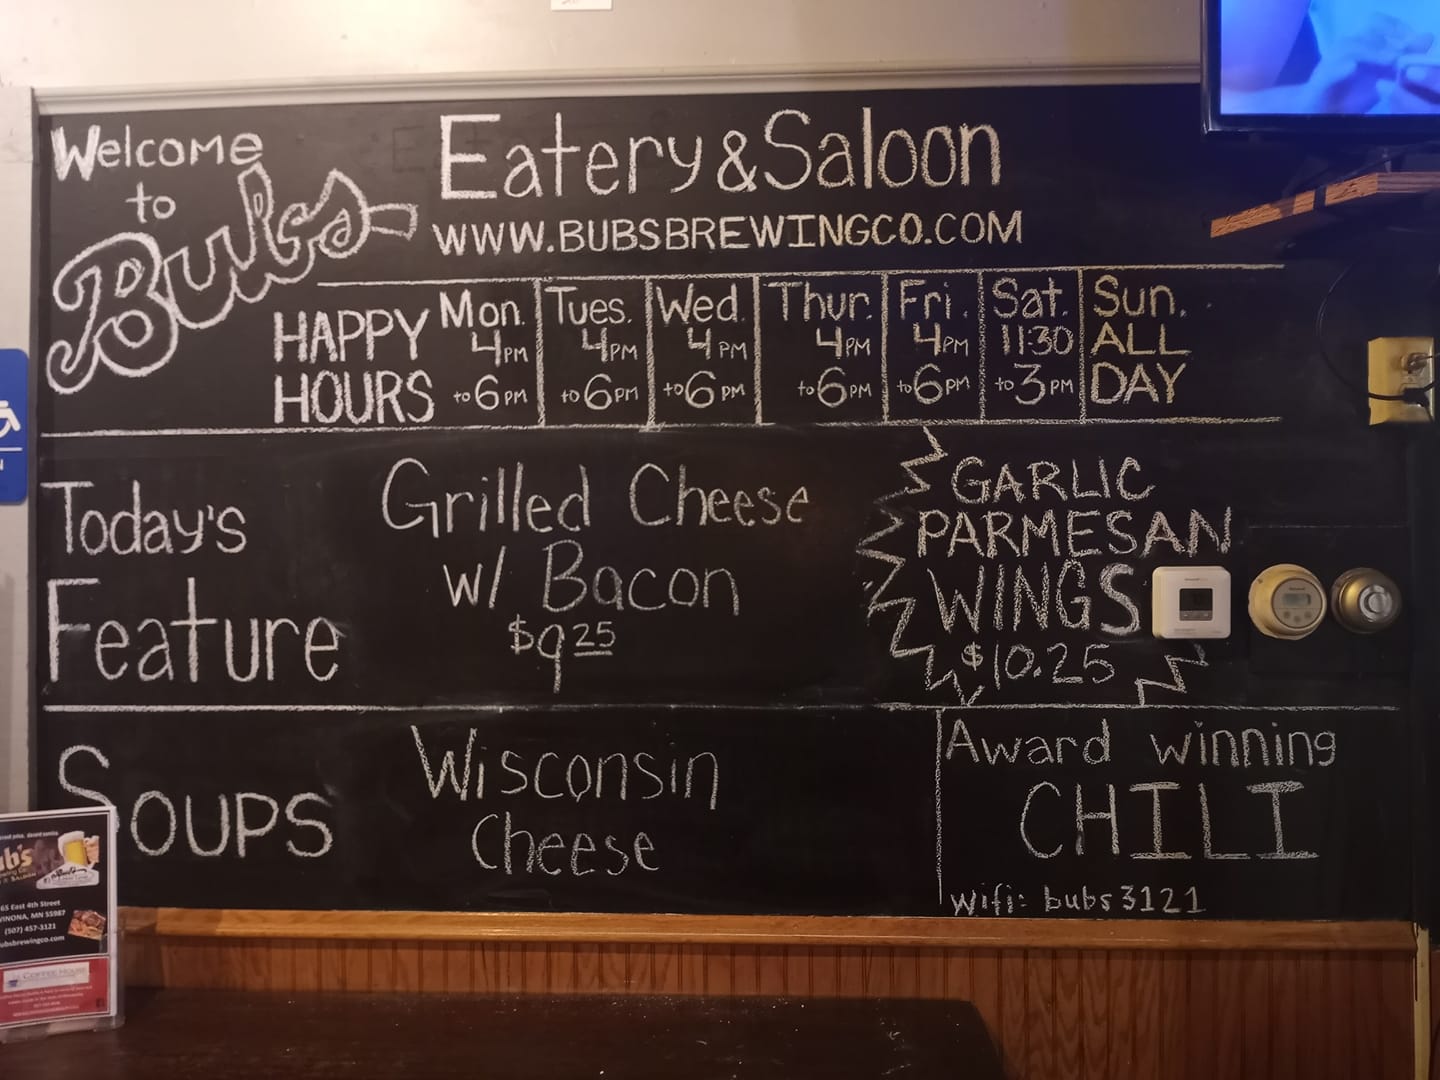 Welcome
to
Bubs
Eatery & Saloon
WWW.BUBSBREWINGCO.COM
HAPPY
HOURS
Mon.
4 PM
to 6 PM
Tues.
4 PM
to 6 PM
Wed.
4 PM
to 6 PM
Thur.
4 PM
to 6 PM
Fri.
4 PM
to 6 PM
Sat.
11:30
to 3 PM
Sun.
ALL
DAY
Today's
Feature
Grilled Cheese
w/ Bacon
$9 25
GARLIC
PARMESAN
WINGS
$10.25
SOUPS
Wisconsin
Cheese
Award winning
CHILI
Wifi: bubs3121
65 East 4th Street
WINONA, MN 55987
(507) 457-3121
COFFEE HOUSE